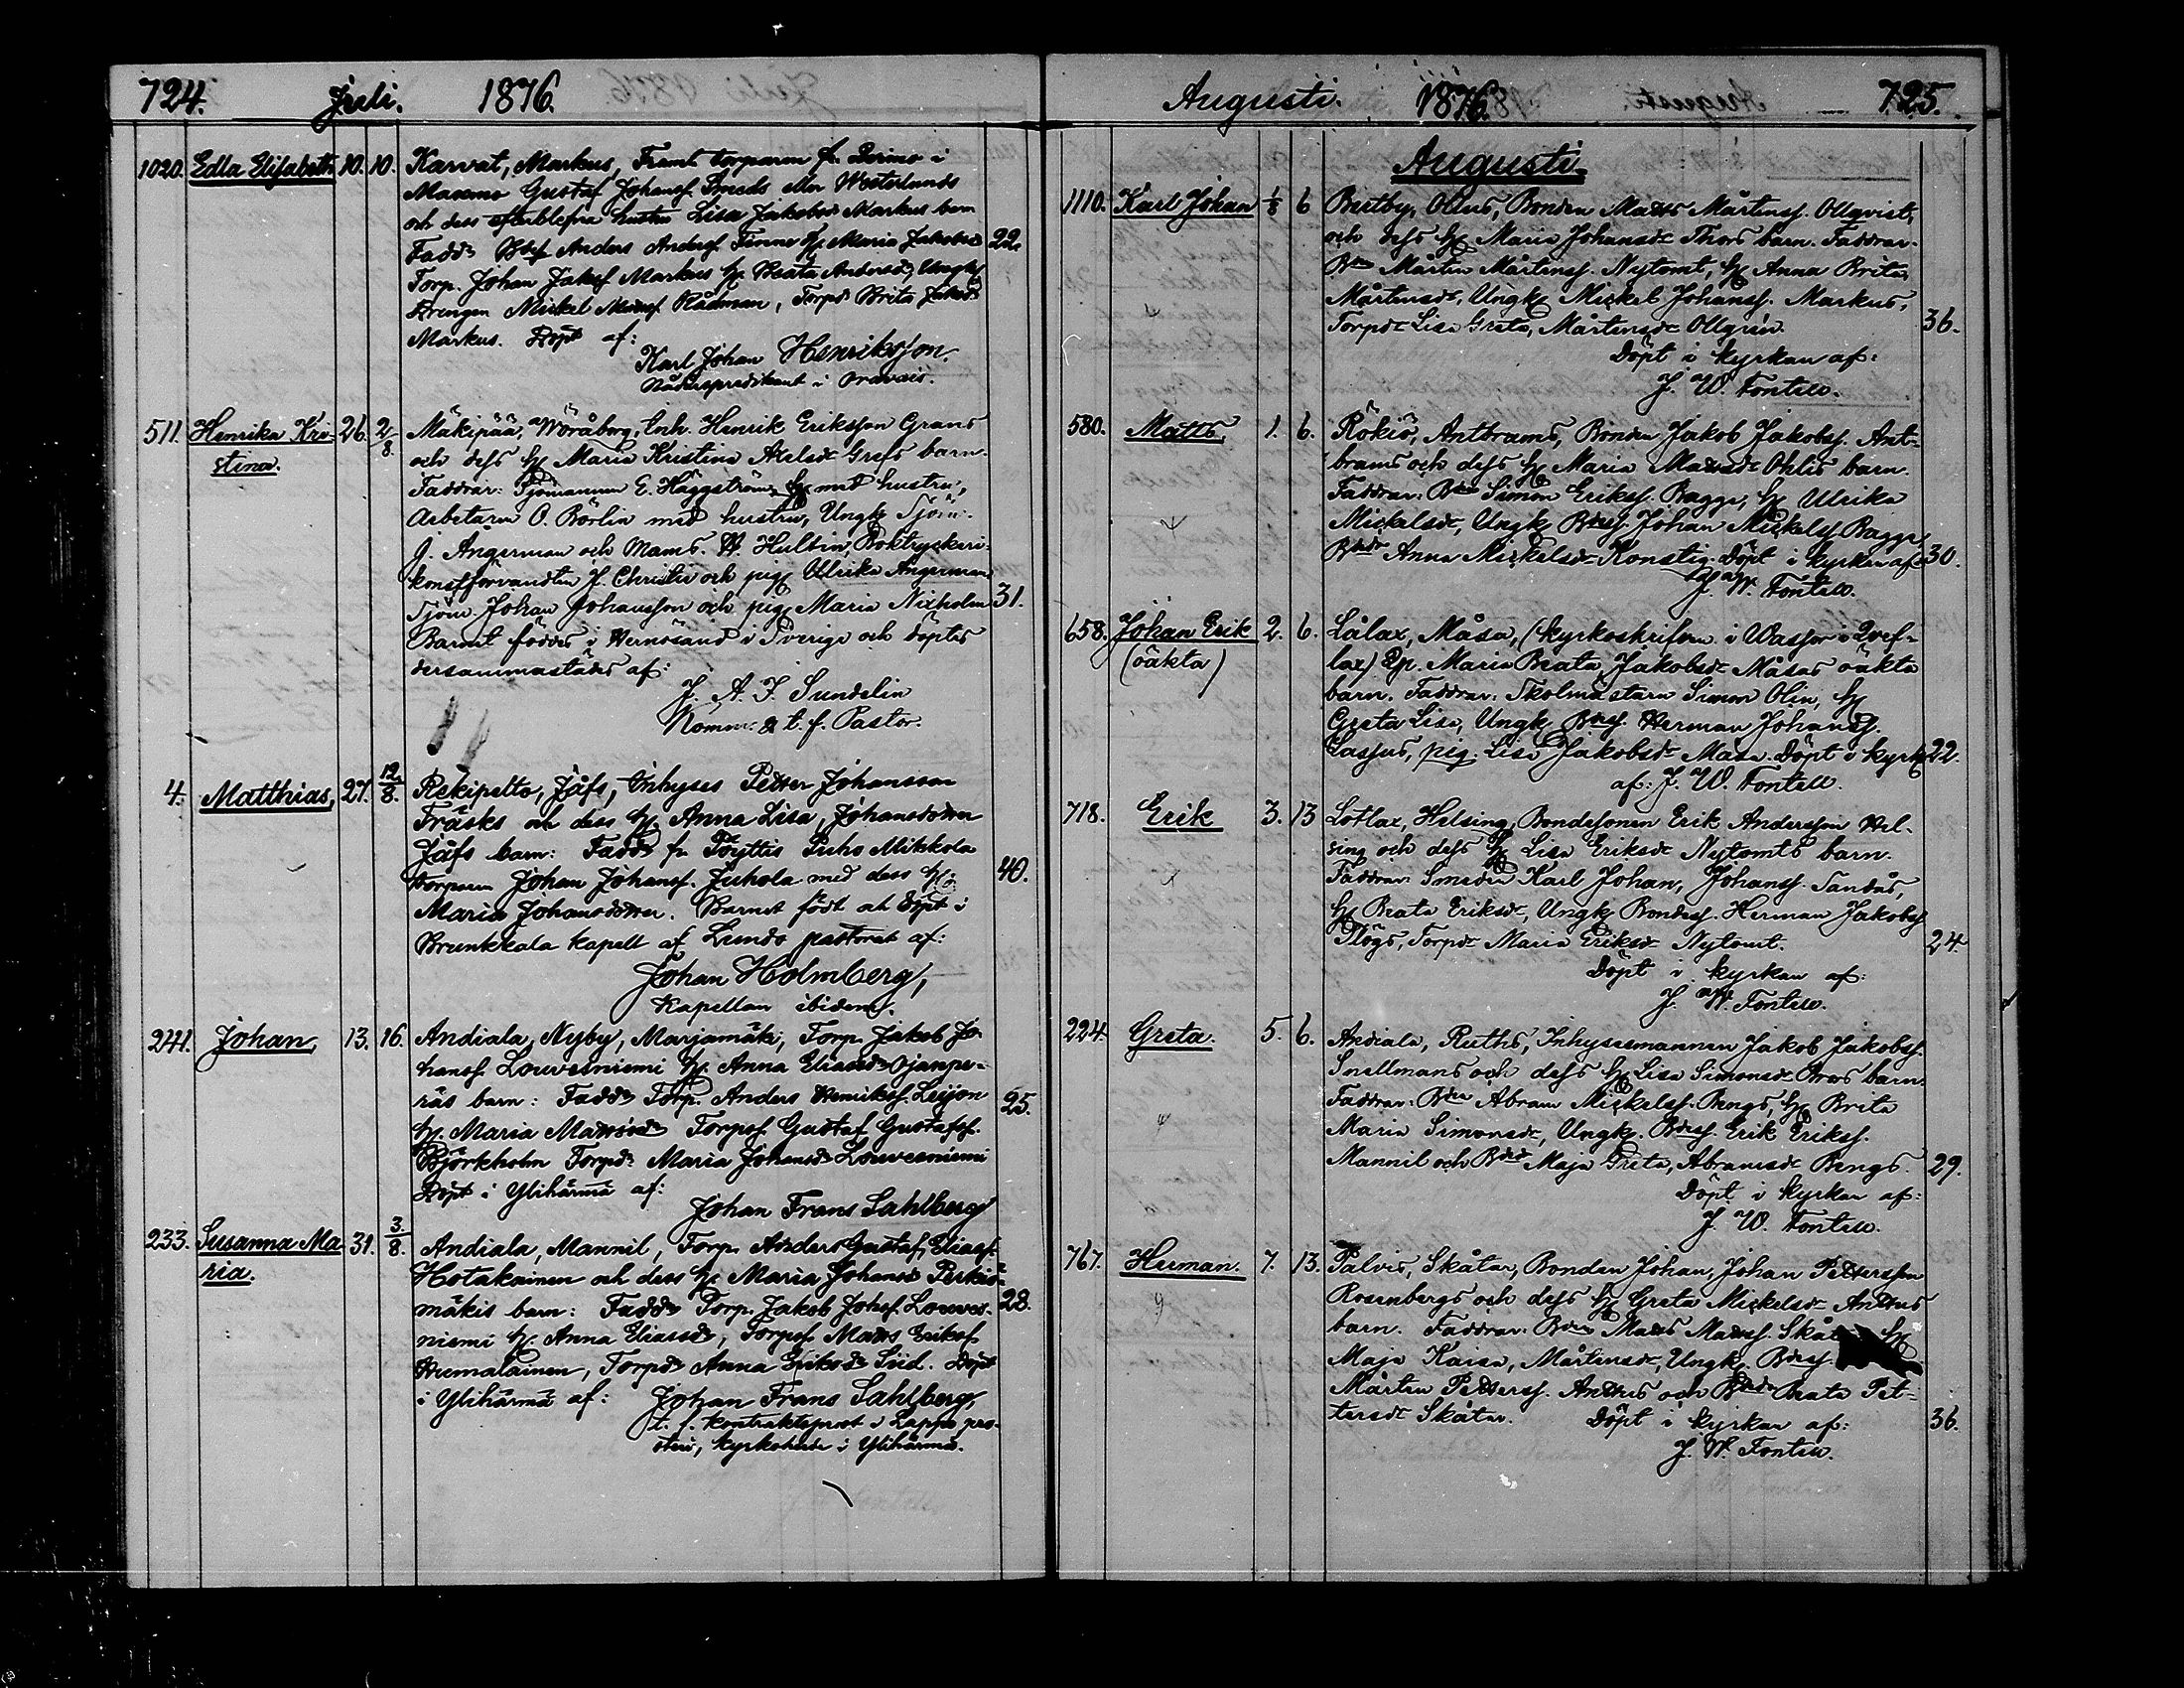 724. Juli. 1876.
1020. Edla Elisabeth 10. 10. Karvat, Markus, Framl. torparen fr. Perino i
Maxmo Gustaf Johanss. Smeds eller Westerlunds
och dess efterblefna hustru Lisa Jakobsd. Markus barn
Fadd. Anders Anderss. Finne Hu Maria Jakobsd. 22.
Torp. Johan Jakss. Markus Hu Beata Andersd., Ungk
Drengen Mickel Rådman, Torpd. Brita Jakobsd.
Markus. Döpt af:
Karl Johan Henriksson.
Nådårspredikant i Oravais.
511. Henrika Kri- 26. 2/8. Mäkipää, Wöråborg, Inh. Henrik Eriksson Grans
stina. och dess Hu Maria Kristina Axelsdr Grefs barn.
Faddrar: Sjömannen E. Häggström med hustru,
Arbetaren O. Börlin med hustru, Ungk Sjöm.
J. Angerman och Mams. W. Hultin, Boktryckeri-
konstförvandten J. Christie och pig. Ulrika Angerman
Sjöm. Johan Johansson och pig. Maria Nixholm 31.
Barnet föddes i Hernösand i Sverige och döptes
dersammastädes af:
J. A. F. Sundelin
Komm. & t. f. Pastor.
4. Matthias, 27. 12/8. Rekipelto, Jåfs, Inhyses Petter Johansson
Fräsks och dess Hu Anna Lisa, Johansdotter
Jåfs barn: Fadd. fr Töyttis Juho Mikkola
torparen Johan Johanss. Juhola med dess Hu 40.
Maria Johansdotter. Barnet födt och döpt i
Brunkkala kapell af Lundo pastorat af:
Johan Holmberg,
Kapellan ibidem.
241. Johan, 13. 16. Andiala, Nyby, Marjamäki, Torp. Jakob Jo-
hanss. Louvesniemi Hu. Anna Eliasd. Ojanpe-
räs barn: Fadd. Torp. Anders Henrikss. Leijon 25.
Hu. Maria Mattsd. Torpss. Gustaf Gustafss.
Björkholm Torpd. Maria Johansd. Louvesniemi
Döpt i Ylihärmä af:
Johan Frans Sahlberg
233. Susanna Ma- 31. 3/8. Andiala, Mannil, Torp. Anders Gustaf, Eliass.
ria. Hotakainen och dess Hu Maria Johansd. Perkiö-
mäkis barn: Fadd. Torp. Jakob Johss. Louves- 28.
niemi Hu. Anna Eliasd., Torpss. Matts Erikss.
Hemalainen, Torpd. Anna Eriksd. Siid. Döpt
i Ylihärmä af: Johan Frans Sahlberg,
t. f. kontraktsprost i Lappo pro-
steri, kyrkoherde i Ylihärmä.
Augusti. 1876. 725.
Augusti
1110. Karl Johan 1/8 6 Bertby, Ollus, Bonden Matts Mårtenss. Ollqvist,
och dess Hu Maria Johansdr Thors barn. Faddrar.
Bdn Mårten Mårtenss. Nytomt, Hu Anna Brita
Mårtensdr, Ungk Mickel Johanss. Markus,
Torpdr Lisa Greta, Mårtensdr Ollgrén. 36.
Döpt i kyrkan af:
J. W. Fontell.
580. Matts, 1. 6. Rökiö, Antbrams, Bonden Jakob Jakobss. Ant-
brams och dess Hu Maria Mattsdr Ohlis barn.
Faddrar: Bdn Simon Erikss. Bagge, Hu Ulrika
Mickelsdr, Ungk Bdess. Johan Mickelss Bagge
Bdedr Anna Mickelsdr Konstig. Döpt i kyrkan af 30.
J. W. Fontell.
658. Johan Erik 2. 6. Lålax, Måsa, (kyrkoskrifven i Wassor i Qvef-
(oäkta) lax) Maria Beata, Jakobsdr Måsas oäkta
barn. Faddrar: Skolmästaren Simon Olin, Hu
Greta Lisa, Ungk Bdess. Herman Johanss.
Lassus, pig. Lisa Jakobsdr Måsa. Döpt i kyrk 22.
af: J. W. Fontell.
718. Erik 3. 13 Lotlax, Helsing, Bondesonen Erik Andersson Hel-
sing och dess Hu Lisa Eriksdr Nytomts barn.
Faddrar: Smeden Karl Johan, Johanss. Sandås,
Hu Beata Eriksdr, Ungk Bondess. Herman Jakobss
Plögs, Torpdr Maria Eriksdr Nytomt. 24.
Döpt i kyrkan af:
J. W. Fontell.
224. Greta. 5. 6. Andiala, Ruths, Inhysesmannen Jakob Jakobss.
Snellmans och dess Hu Lisa Simonsdr barn.
Faddrar: Bdn Abram Mickelss. Bengs, Hu Brita
Maria Simonsdr, Ungk. Bdess. Erik Erikss.
Mannil och Bded Maja Greta, Abramsdr Bengs. 29.
Döpt i kyrkan af:
J. W. Fontell.
767. Herman. 7. 13. Palvis, Skåtar, Bonden Johan, Johan Pettersson
Rosenbergs och dess Hu Greta Mickelsdr Anttus
barn. Faddrar: Bdn Matts Mattss. Hu
Maja Kaisa, Mårtensdr, Ungk. Bdess.
Mårten Petterss. Anttus och Bdedr Beata Pet-
tersdr Skåtar. Döpt i kyrkan af: 36.
J. W. Fontell.